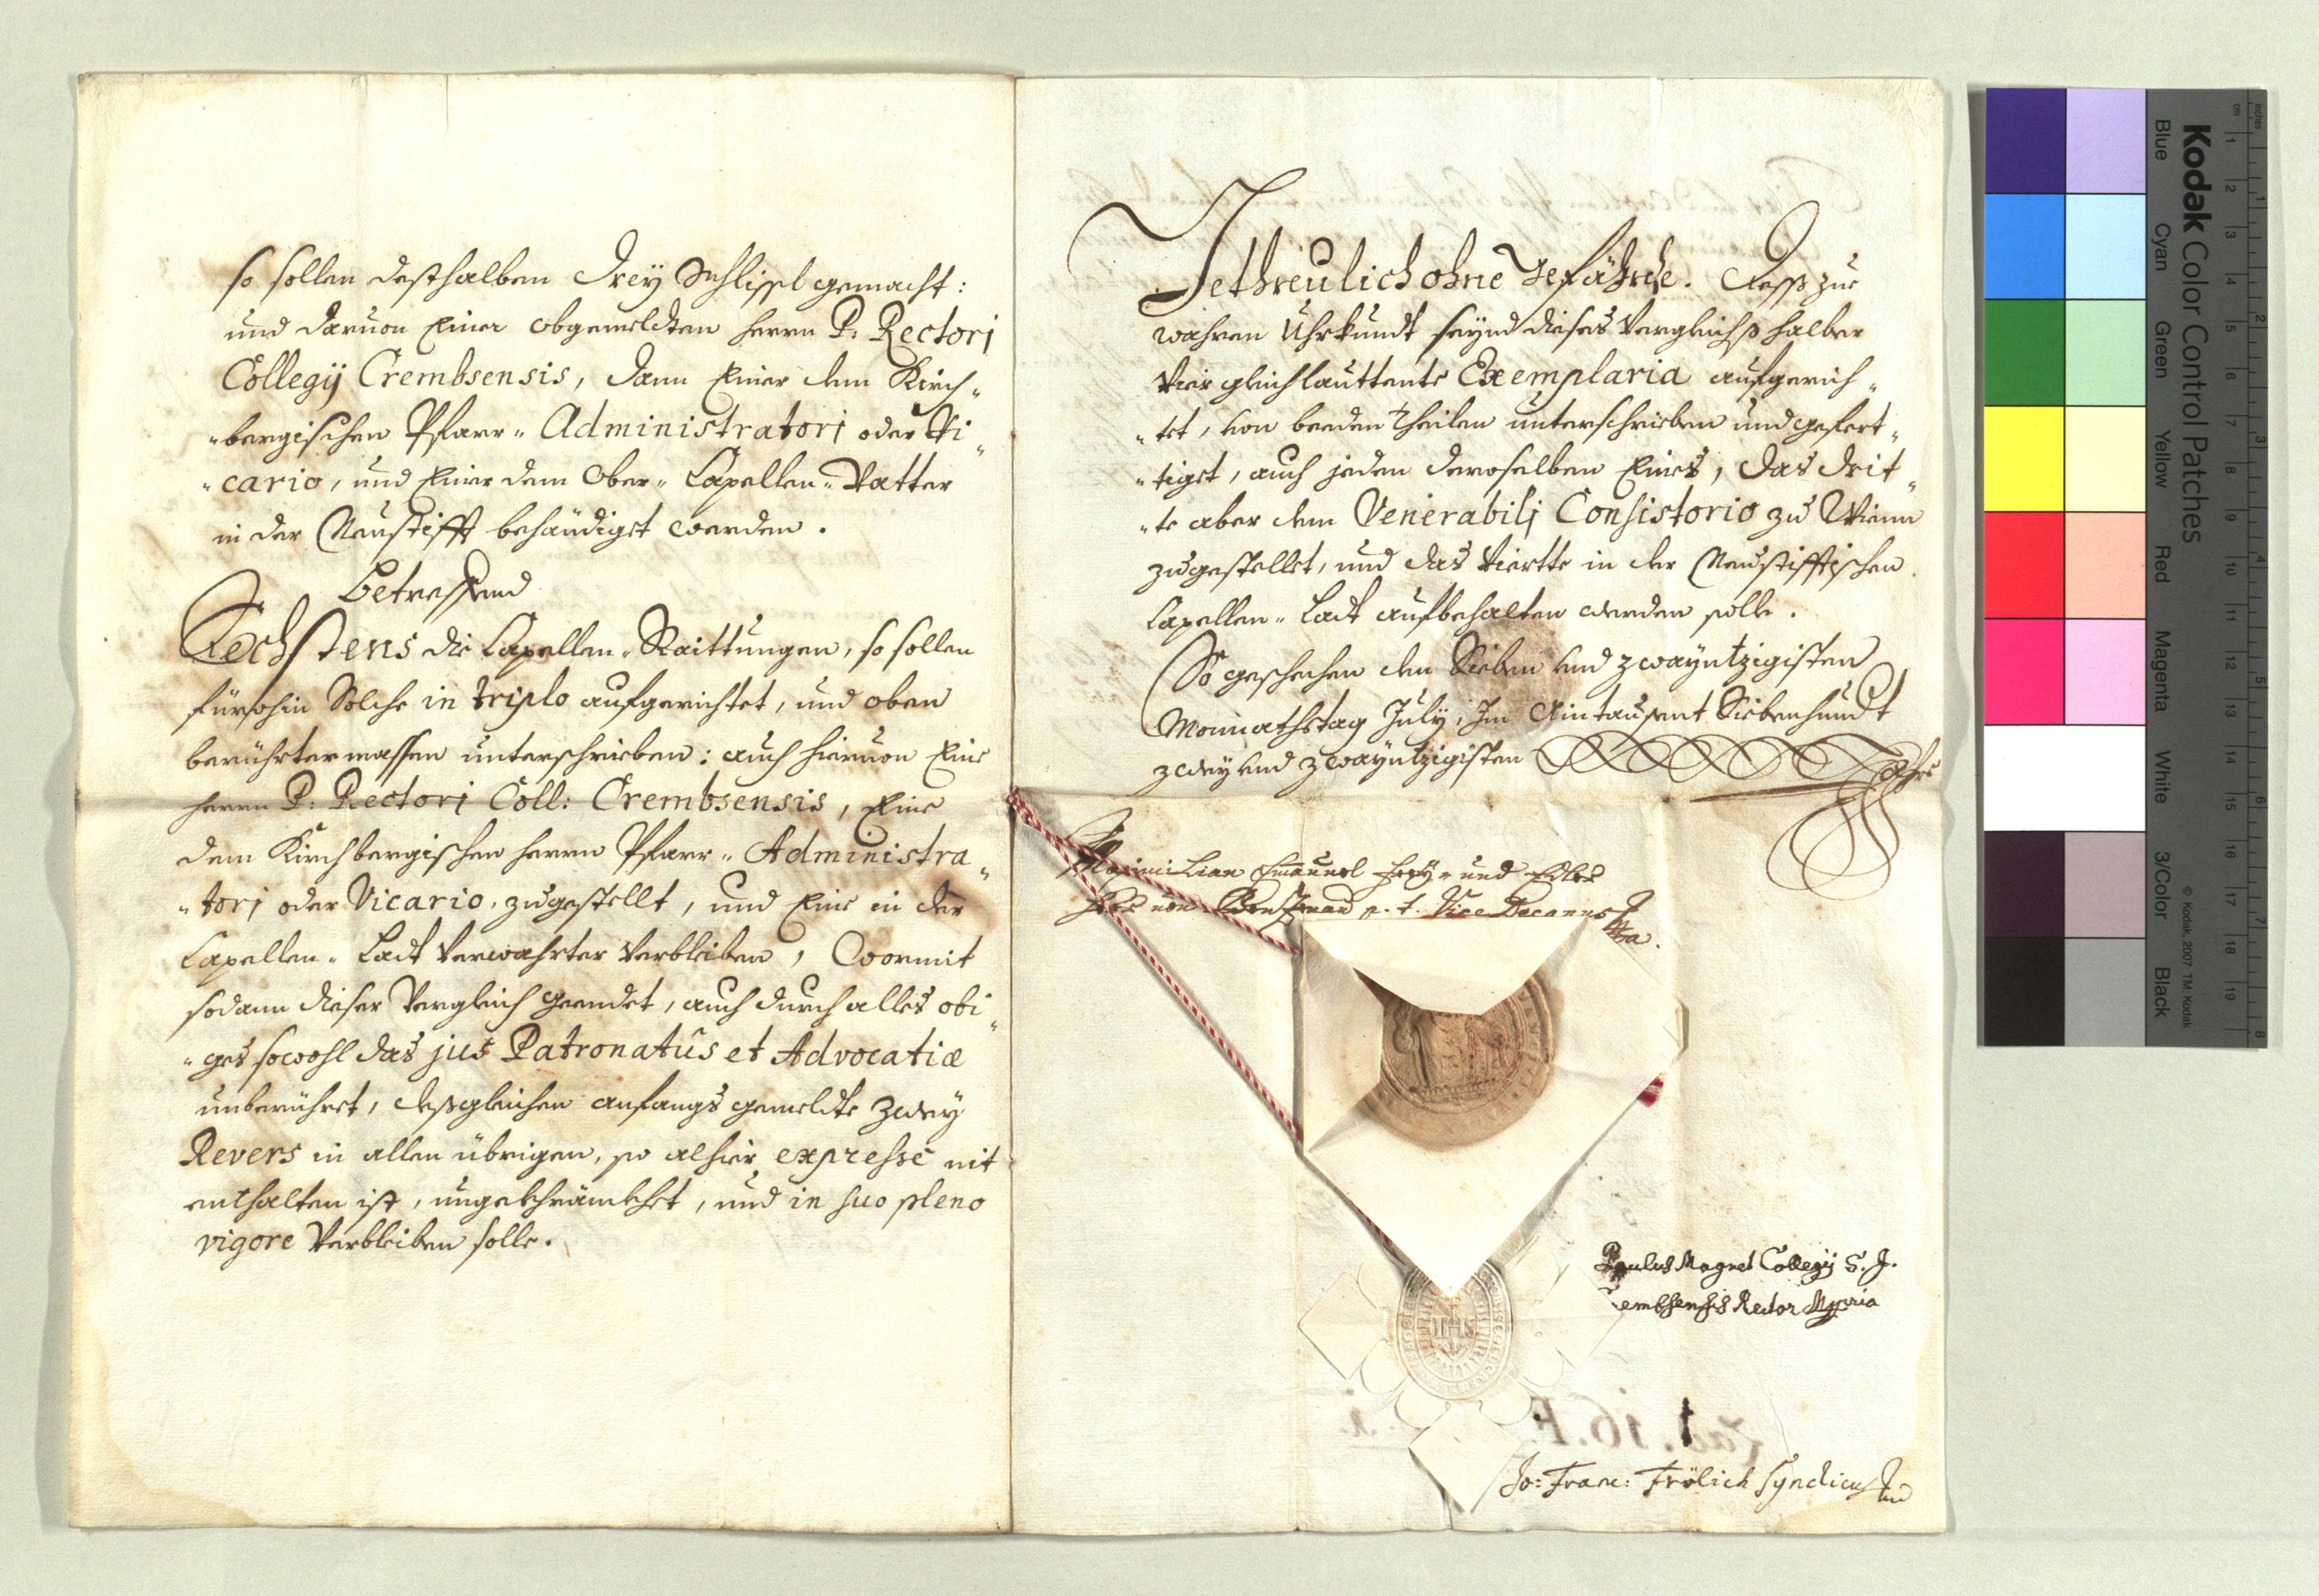 so sollen desthalben drey Schlissl gemacht:
und daruon Einer obgemeldten herrn P. Rectorj
Collegij Crembsensis, dann Einer dem Kirch„
„bergischen Pfarr„ Administratorj oder Vi„
„cario, und Einer dem Ober„ Capellen„ Vatter
in der Neustifft behändiget werden.
Betreffend
Sechstens die Capellen„ Raittungen, so sollen
fürohin Solche in triplo aufgerichtet, und oben
berührter massen unterschrieben: auch hieruon Eine
herrn P: Rectorj Coll: Crembsensis, Eine
dem Kirchbergischen herrn Pfarr„ Administra„
„torj oder Vicario, zugestellt, und Eine in der
Capellen„ Ladt Verwahrter Verbleiben, Wormit
sodann dieser Vergleich geendet, auch durch alles obi„
„ges sowohl das jus Patronatûs et Advocatiæ
unberühret, dessgleichen anfangs gemeldte zwey
Revers in allen übrigen, so alhier expressè nit
enthalten ist, ungekhränckhet, und in suo pleno
vigore Verbleiben solle.
Gethreulich ohne Gefährde. Dess zur
wahren Uhrkundt seynd dieses Vergleichs halber
Vier gleichlauttente Exemplaria aufgerich„
„tet, von beeden Theilen unterschrieben und gefert„
„tiget, auch jeden deroselben Eines, das drit„
„te aber dem Venerabilj Consistorio zu Wienn
zugestellet, und das Viertte in der Neustifftischen
Capellen„ Ladt aufbehalten werden solle.
So geschehen den Sieben und zwayntzigisten
Monnathstag July, Im Aintausent Siebenhundt
zwey und zwayntzigisten Jahrs
Maximilian Emanuel Frey„ und Edler
Herr von p. t. Vice Decanus
Paulus Magnet Collegij S. J.
Crembsensis Rector Mppria
IHS
Jo: Franc: Frölich Syndicus
Kodak Color Control Patches
Blue
Cyan
Green
Yellow
Red
Magenta
White
3/Color
Black
© Kodak, 2007 TM: Kodak
inches
cm
1
2
3
4
5
6
7
8
9
10
11
12
13
14
15
16
17
18
19
1
2
3
4
5
6
7
8